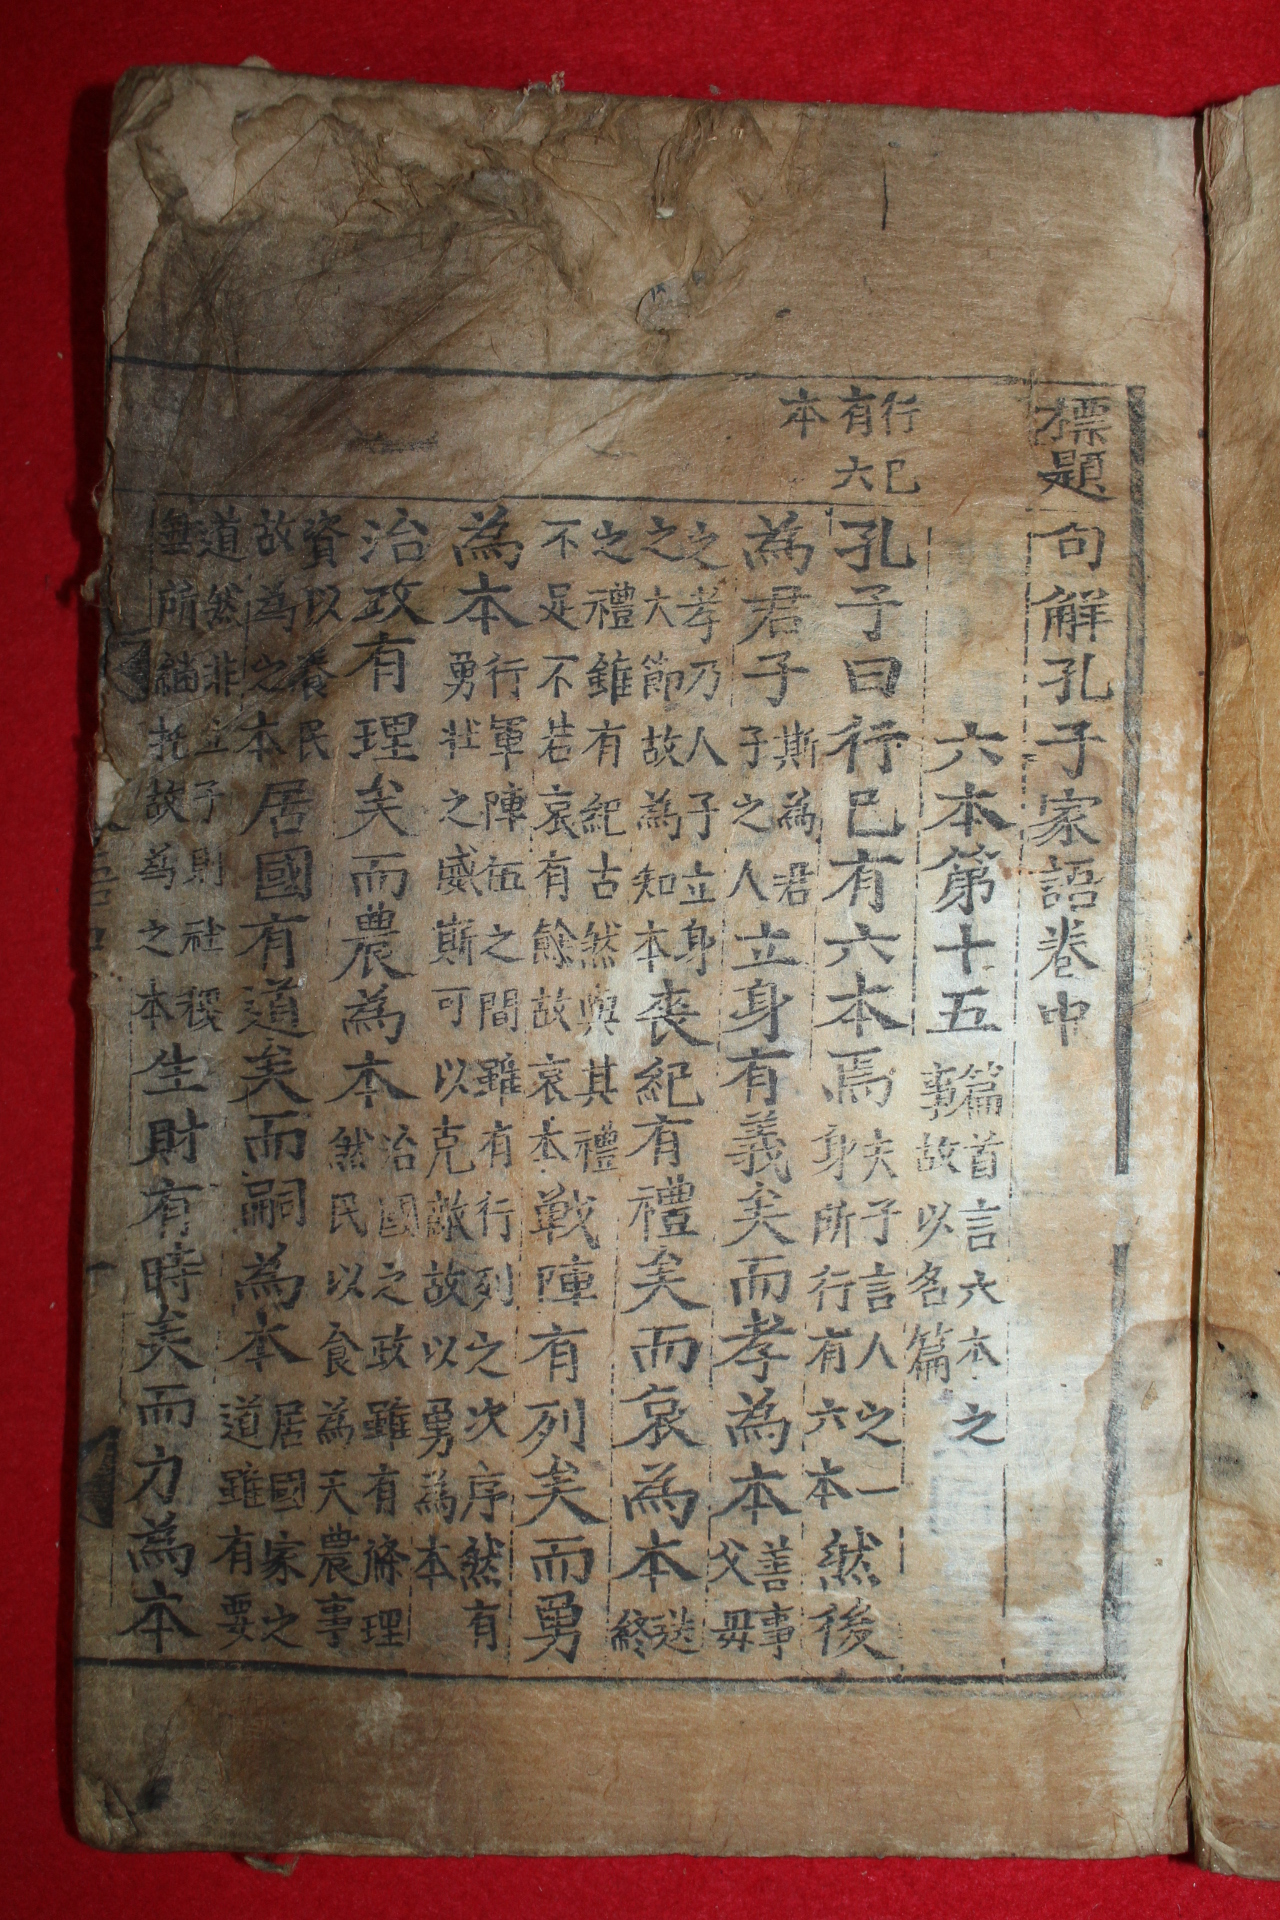 標題句解孔子家語卷中
六本第十五篇首言六本之事故以名篇
行己有六本
孔子曰行己有六本焉夫子言人之一身所行有六本然後
為君子斯為君子之人立身有義矣而孝為本善事父母
之孝乃人子立身之大節故為知本喪紀有禮矣而哀為本送終
之禮雖有紀古然與其禮不足不若哀有餘故哀本戰陣有列矣而勇
為本行軍陣伍之間雖有行列之次序然有勇壯之威斯可以克敵故以勇為本
治政有理矣而農為本治國之政雖有條理然民以食為天農事
資以養民故為之本居國有道矣而嗣為本居國家之道雖有要
道然非立子則社稷無所托故為之本生財有時矣而力為本